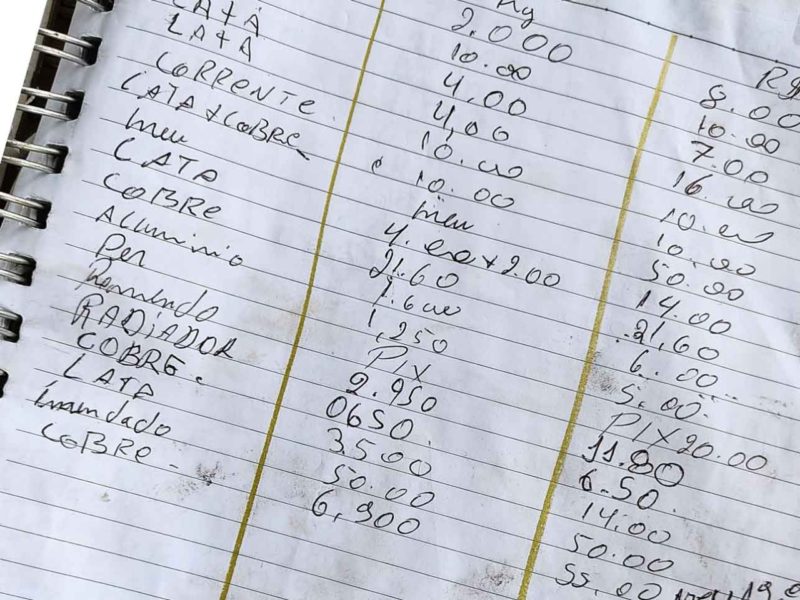 Kg R$
2.000 8.00
10.00 10.00
LATA 4.00 7.00
LATA 4,00 16.00
CORRENTE 10.00 10.00
LATA + COBRE 10.00 10.00
meu meu 50.00
LATA 4.00+200 14.00
COBRE 21.60 21,60
Aluminio 6.00
Pen 1,250 5,00
Remendo PIX PIX 20.00
RADiADOR 2.950 11.80
COBRE. 0650 6.50
LATA 3500 14.00
Emendado 50.00 50.00
COBRe - 6,900 55,00